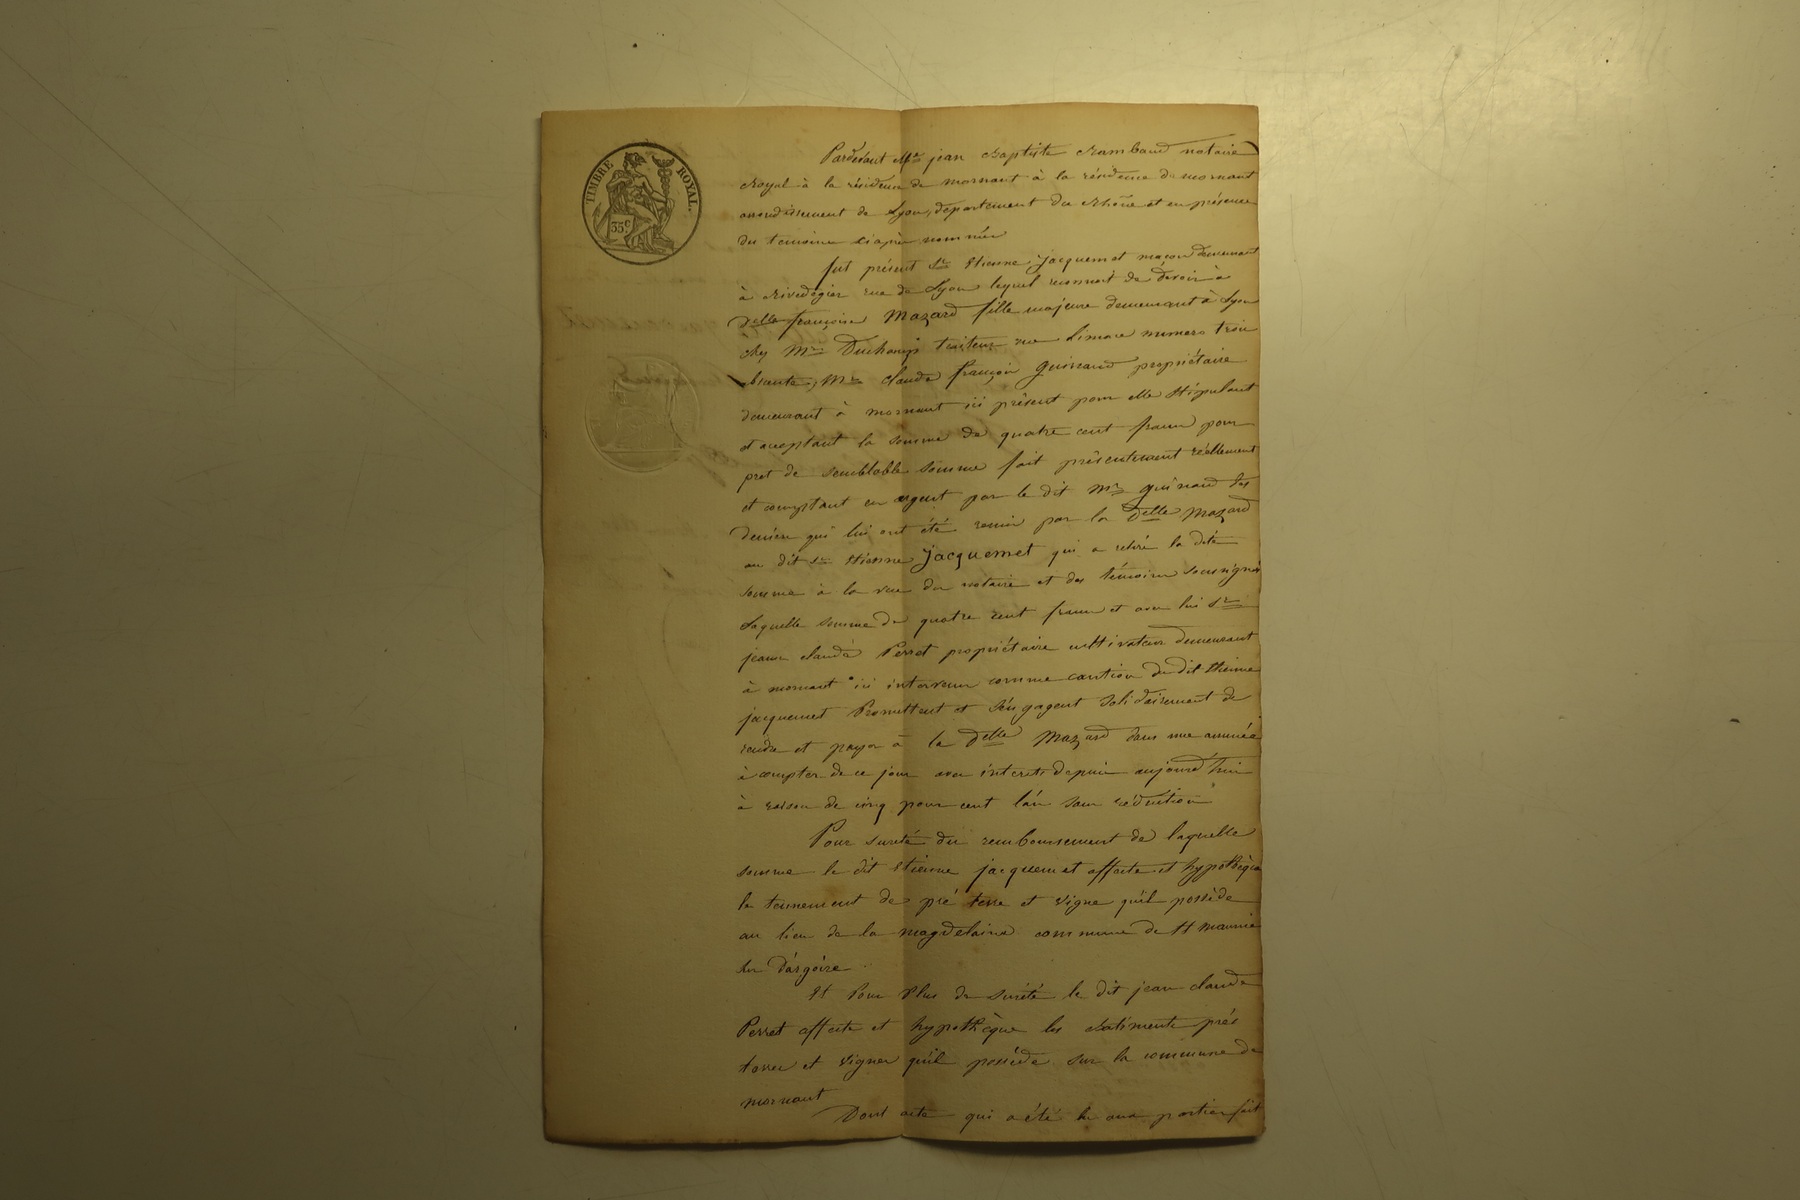 TIMBRE ROYAL.
35c
Pardevant Me jean Baptiste Rambaud notaire
Royal à la résidence de mornant à la résidence de mornant
arrondissement de Lyon, departement du Rhône et en présence
du temoins ci après nommés
fut présent Sr Etienne jacquemet maçon demeurant
à Rivedegier rue de Lyon lequel reconnait de devoir à
Delle françoise Mazard fille majeure demeurant à Lyon
chez Mr Duchamp traiteur rue Limace numero trois
absente, Mr claude françois guinand propriétaire
demeurant à mornant ici présent pour elle stipulant
et acceptant la somme de quatre cent francs pour
pret de semblable somme fait présentement réellement
et comptant en argent par le dit Mr guinand des
deniers qui lui ont été remis par la Delle Mazard
au dit sr Etienne jacquemet qui a retiré la dite
somme à la vue du notaire et des témoins soussignés
Laquelle somme de quatre cent francs et avec lui Sr
jean claude Perret propriétaire cultivateur demeurant
à mornant ici intervenu comme caution du dit Etienne
jacquemet Promettent et s'en gagent solidairement de
rendre et payer à la Delle Mazard dans une année
à compter de ce jour avec interets depuis aujourd'hui
à raison de cinq pour cent l'an sans réduction
Pour sureté du remboursement de laquelle
somme le dit Etienne jacquemet affecte et hypothèque
le tennement de pré terre et vigne qu'il possède
au lieu de la magdelaine commune de St maurice
sur Dargoire
Et Pour Plus de sureté le dit jean claude
Perret affecte et hypothèque les Batiments prés
terres et vignes qu'il possède sur la commune de
mornant
Dont acte qui a été lu aux parties fait